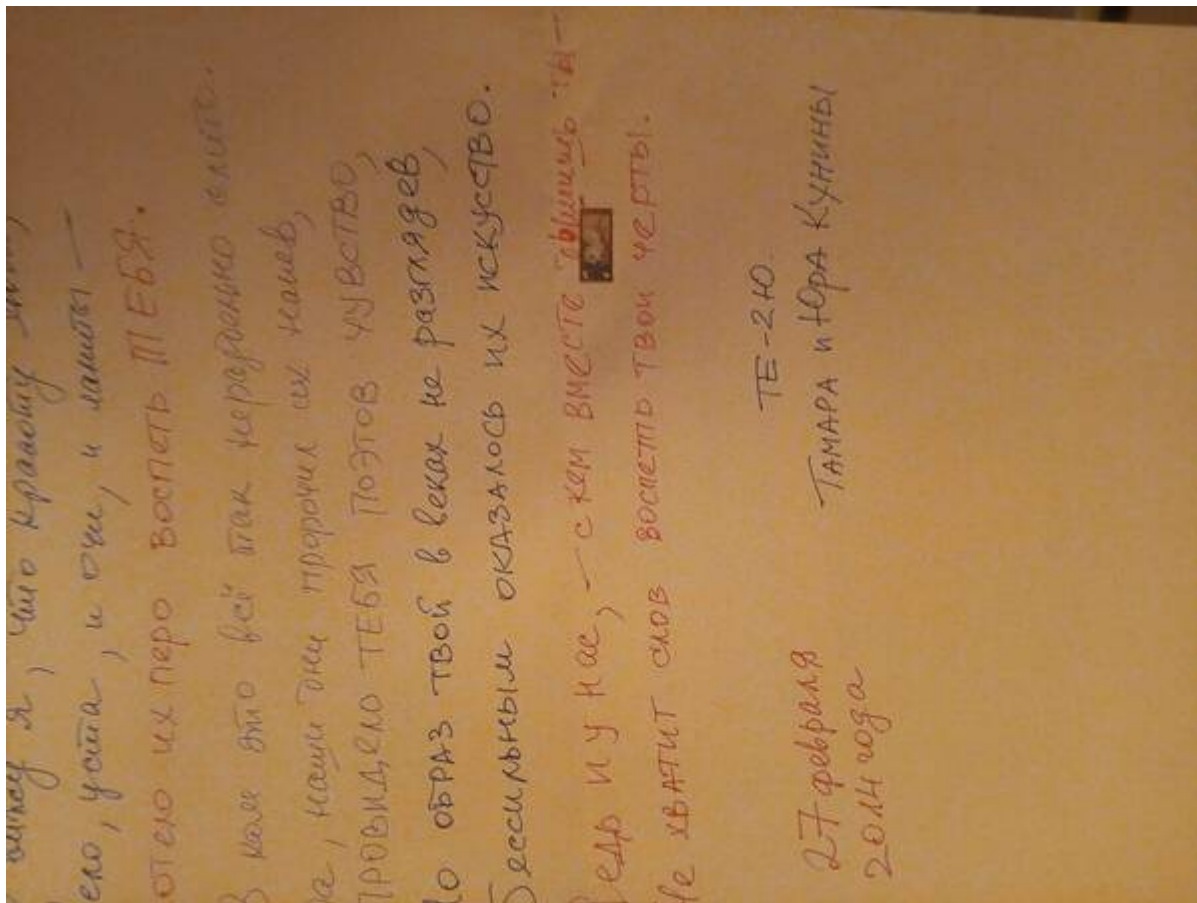 вижу я, что красоту
ело, уста, и очи, и ланиты —
отело их перо воспеть ТЕБЯ.
В нам это всё так нераздельно слито.
а, наши дни пророчил их напев,
ПРОВИДЕЛО ТЕБЯ ПОЭТОВ ЧУВСТВО,
о ОБРАЗ ТВОЙ в веках не разглядев,
Бессильным оказалось их искусство.
едь и у нас, — с кем вместе дышишь ты —
Не хватит слов воспеть твои черты.
ТЕ-2Ю.
27 февраля Тамара и Юра Кунины
2014 года